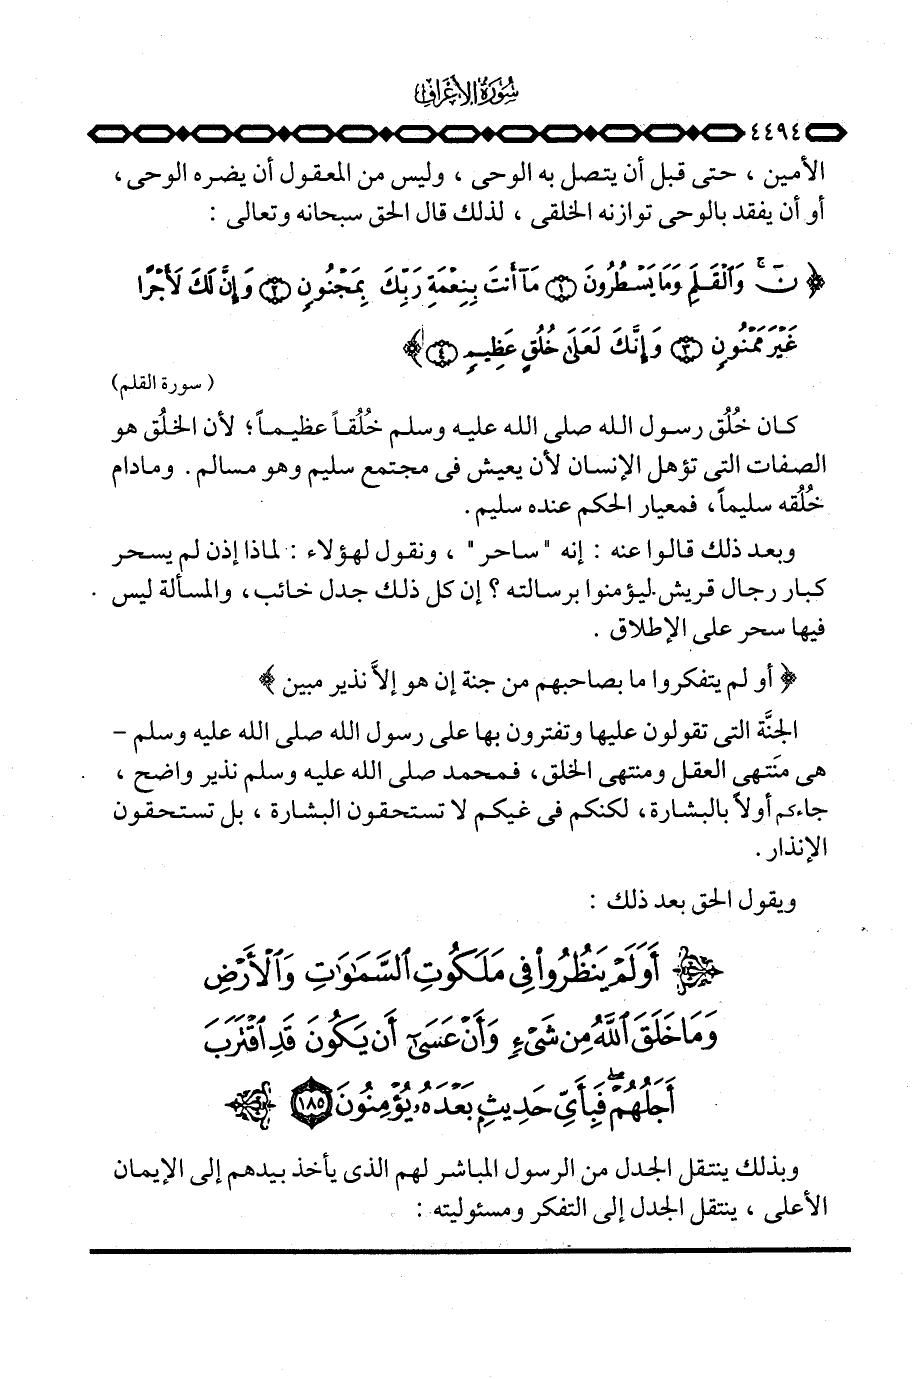 سُورَةُ الأَعْرَافِ
٤٤٩٤
الأمين ، حتى قبل أن يتصل به الوحى ، وليس من المعقول أن يضره الوحى ،
أو أن يفقد بالوحى توازنه الخلقى ، لذلك قال الحق سبحانه وتعالى :
﴿ نٓ ۚ وَٱلْقَلَمِ وَمَا يَسْطُرُونَ ① مَآ أَنتَ بِنِعْمَةِ رَبِّكَ بِمَجْنُونٍ ② وَإِنَّ لَكَ لَأَجْرًا
غَيْرَ مَمْنُونٍ ③ وَإِنَّكَ لَعَلَىٰ خُلُقٍ عَظِيمٍ ④ ﴾
( سورة القلم)
كان خُلُق رسول الله صلى الله عليه وسلم خُلُقاً عظيماً؛ لأن الخلُق هو
الصفات التى تؤهل الإنسان لأن يعيش فى مجتمع سليم وهو مسالم . ومادام
خُلُقه سليماً، فمعيار الحكم عنده سليم.
وبعد ذلك قالوا عنه : إنه "ساحر" ، ونقول لهؤلاء : لماذا إذن لم يسحر
كبار رجال قريش ليؤمنوا برسالته ؟ إن كل ذلك جدل خائب، والمسألة ليس
فيها سحر على الإطلاق .
﴿ أو لم يتفكروا ما بصاحبهم من جنة إن هو إلاَّ نذير مبين ﴾
الجنَّة التى تقولون عليها وتفترون بها على رسول الله صلى الله عليه وسلم –
هى منتهى العقل ومنتهى الخلق، فمحمد صلى الله عليه وسلم نذير واضح ،
جاءكم أولاً بالبشارة، لكنكم فى غيكم لا تستحقون البشارة ، بل تستحقون
الإنذار .
ويقول الحق بعد ذلك :
﴿ أَوَلَمْ يَنظُرُوا۟ فِى مَلَكُوتِ ٱلسَّمَـٰوَٰتِ وَٱلْأَرْضِ
وَمَا خَلَقَ ٱللَّهُ مِن شَىْءٍ وَأَنْ عَسَىٰٓ أَن يَكُونَ قَدِ ٱقْتَرَبَ
أَجَلُهُمْ ۖ فَبِأَىِّ حَدِيثٍۭ بَعْدَهُۥ يُؤْمِنُونَ ١٨٥ ﴾
وبذلك ينتقل الجدل من الرسول المباشر لهم الذى يأخذ بيدهم إلى الإيمان
الأعلى ، ينتقل الجدل إلى التفكر ومسئوليته :